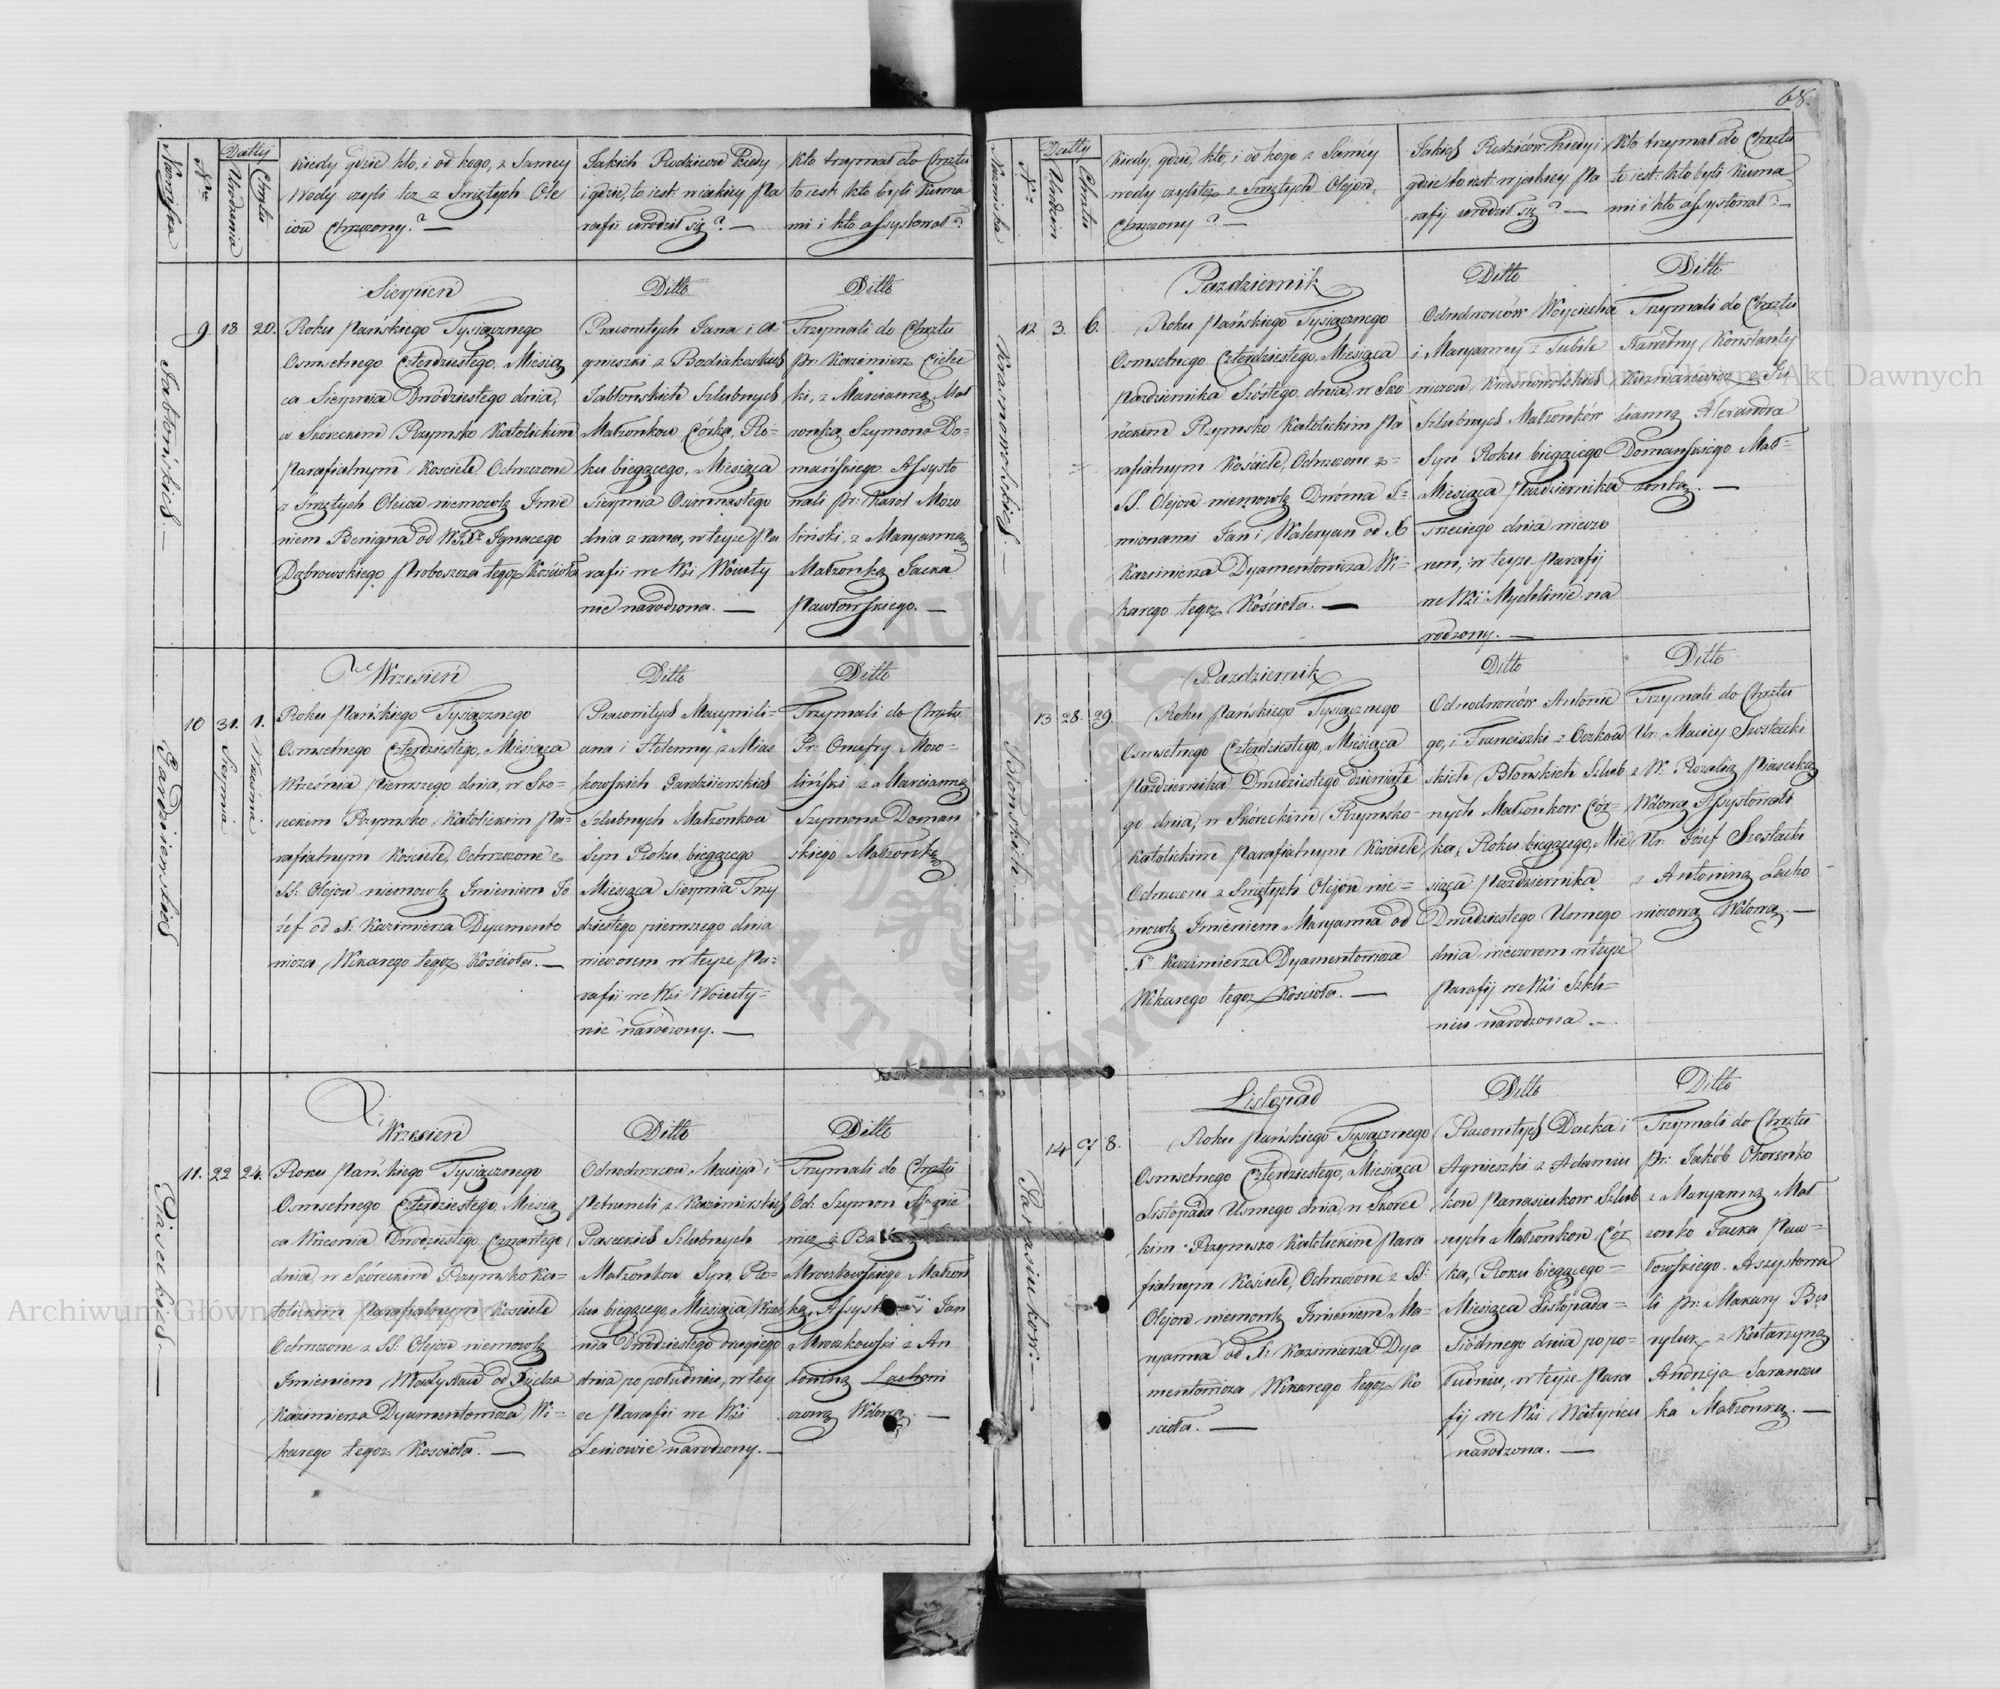 68.
Nazwiska
Nr
Datty
Urodzenia
Chrztu
Kiedy gdzie kto, i od kogo, z Samey
Wody czyli też z Swiętych Ole
iów Chrzczony? —
Jakich Rodziców Kiedy
i gdzie, to iest: w iakiey Pa
rafii urodził się? —
Kto trzymał do Chrztu
to iest: kto byli Kuma
mi i kto assystował?
Jabłońskich. —
9
18
20.
Sierpień
Roku Pańskiego Tysiącznego
Osmsetnego Czterdziestego, Miesią
ca Sierpnia Dwódziestego dnia,
w Skóreckim Rzymsko Katolickim
Parafialnym Kościele Ochrzczone
z Swiętych Oleiów niemowlę Imie
niem Benigna od Ignacego
Dąbrowskiego Proboszcza tegoż Kościoła
Ditto
Pracowitych Jana i A-
gnieszki z Bodiakoskich
Jabłońskich Szlubnych
Małżonków Córka, Ro-
ku bieżącego, Miesiąca
Sierpnia Osiemnastego
dnia z rana, w teyże Pa
rafii we Wsi Wouty
nie narodzona. —
Ditto
Trzymali do Chrztu
Pr: Kazimierz Cielec
ki, z Marcianną Mał
żonką Szymona Do-
mańskiego. Assysto
wali Pr: Karol Mozo
liński, z Maryanną
Małżonką Jacka
Pawłowskiego. —
Gardzieiewskich
10
31.
Sierpnia
1.
Września
Wrzesień
Roku Pańskiego Tysiącznego
Osmsetnego Czterdziestego, Miesiąca
Września Pierwszego dnia, w Sko-
reckim Rzymsko Katolickim Pa-
rafialnym Kościele, Ochrzczone z
SS: Olejow niemowlę Imieniem Jo
zef od X. Kazimierza Dyamento
wicza Wikarego tegoż Kościoła. —
Ditto
Pracowitych Maxymili-
ana i Heleny z Mias
kowskich Gardzieiewskich
Szlubnych Małżonkow
Syn Roku bieżącego
Miesiąca Sierpnia Trzy
dziestego pierwszego dnia
wieczorem w teyże Pa-
rafii we Wsi Wouty-
nie narodzony. —
Ditto
Trzymali do Chrztu
Pr: Onufry Mozo-
liński z Marcianną
Szymona Doman
skiego Małżonką
Piaseckich —
11.
22
24.
Wrzesień
Roku Pańskiego Tysiącznego
Osmsetnego Czterdziestego, Miesią
ca Wrzesnia Dwódziestego Czwartego
dnia, w Skóreckim Rzymsko Ka-
tolickim Parafialnym Kościele
Ochrzczone z SS: Olejow niemowlę
Imieniem Władysław od Xiędza
Kazimierza Dyamentowicza, Wi-
karego tegoż Kościoła. —
Ditto
Odnodworcow Macieja i
Petruneli z Kazimirskich
Piaseckich Szlubnych
Małżonkow Syn, Ro-
ku bieżącego, Miesiąca Wrześ
nia Dwódziestego drugiego
dnia po południu, w tey
że Parafii we Wsi
Leniowie narodzony. —
Ditto
Trzymali do Chrztu
Od. Szymon
wicz z
Mroczkowskiego Małżon
ką, i Jan
Mroczkowski z An
toniną Lachowi
czową Wdową. —
Nazwiska
Nr
Datty
Urodzin
Chrztu
Kiedy, gdzie, kto, i od kogo z Samey
wody czyliteż z Swiętych Olejow,
Chrzczony? —
Jakich Rodziców Kiedy i
gdzie to iest: w jakiey Pa
rafij urodził się? —
Kto trzymał do Chrztu
to iest: kto byli Kuma
mi i kto assystował? —
Krasnowolskich. —
12
3.
6.
Pazdziernik
Roku Pańskiego Tysiącznego
Osmsetnego Czterdziestego, Miesiąca
Pazdziernika Szóstego, dnia, w Sko
reckim Rzymsko Katolickim Pa
rafialnym Kościele, Ochrzczone z-
SS. Olejow niemowlę Dwóma I-
mionami Jan i Waleryan od X
Kazimierza Dyamentowicza, Wi-
karego tegoż Kościoła. —
Ditto
Odnodworców Woyciecha
i Maryanny z Tubile
wiczów Krasnowolskich
Szlubnych Małżonków
Syn Roku bieżącego
Miesiąca Pazdziernika
Trzeciego dnia wieczo
rem, w teyże Parafij
we Wsi Mychlinie na
rodzony. —
Ditto
Trzymali do Chrztu
Konstanty
z Ju
lianną Alexandra
Domańskiego Mał-
żonką. —
Błonskich. —
13
28.
29.
Pazdziernik
Roku Pańskiego Tysiącznego
Osmsetnego Czterdziestego, Miesiąca
Pazdziernika Dwudziestego dziewiąte
go dnia, w Skóreckim Rzymsko-
Katolickim Parafialnym Kościele
Ochrzczone z Swiętych Olejow nie-
mowlę Imieniem Maryanna od
X. Kazimierza Dyamentowicza
Wikarego tegoż Kościoła. —
Ditto
Odnodworców Antonie
go, i Franciszki z Oczkow
skich Błonskich Szlub
nych Małżonkow Cór-
ka, Roku bieżącego, Mie
siąca Pazdziernika
Dwudziestego Usmego
dnia wieczorem w teyże
Parafij we Wsi Szkli-
niu narodzona —.
Ditto
Trzymali do Chrztu
Ur. Maciey Szostacki
z W. Rozalią Piasecką
Wdową Assystowali
Ur. Józef Szostacki
z Antoniną Lacho
wiczową Wdową. —
Panasiukow. —
14
7
8.
Listopad
Roku Pańskiego Tysiącznego
Osmsetnego Czterdziestego, Miesiąca
Listopada Usmego dnia, w Skorec
kim Rzymsko Katolickim Para
fialnym Kościele, Ochrzczone z SS:
Olejow niemowlę Imieniem Ma-
ryanna od X: Kazimierza Dya
mentowicza Wikarego tegoż Ko
scioła. —
Ditto
Pracowitych Dacka i
Agnieszki z Adamiu
kow Panasiukow Szlub
nych Małżonkow, Cór
ka, Roku bieżącego-
Miesiąca Listopada-
Siódmego dnia po po-
łudniu, w teyże Para
fij we Wsi Wołyńcu
narodzona. —
Ditto
Trzymali do Chrztu
Pr. Jakób Okorenko
z Maryanną Mał
żonko Jacka Paw-
łowskiego. Aszystowa
li Pr. Makary Bo
ryluk z Katarzyną
Andrzeja Tarancu
ka Małżonką. —
Archiwum Główne Akt Dawnych
Archiwum Główne Akt Dawnych
ARCHIWUM GŁÓWNE AKT DAWNYCH